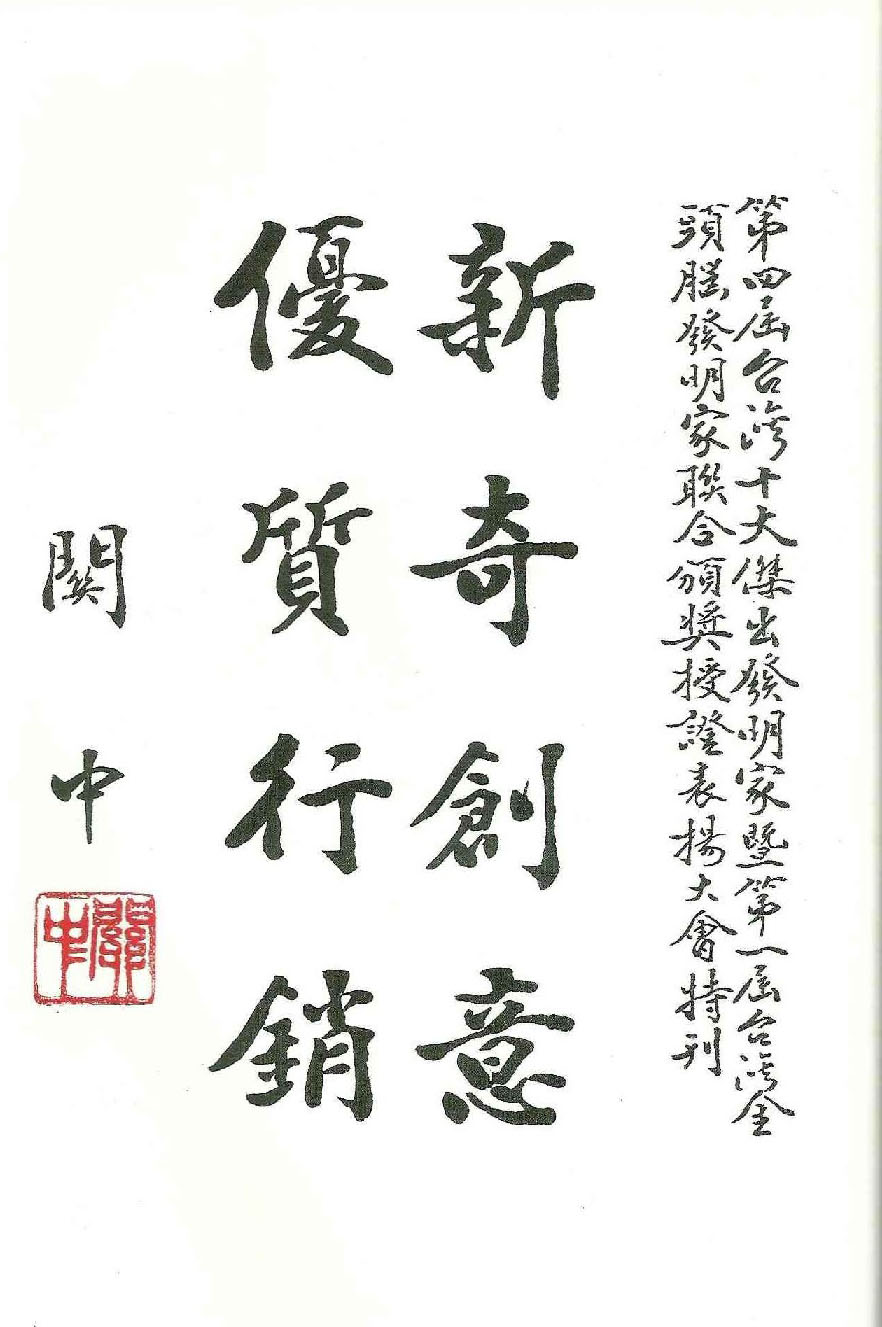 第四屆台灣十大傑出發明家暨第一屆台灣金
頭腦發明家聯合頒獎授證表揚大會特刊
新奇創意
優質行銷
關中
關中